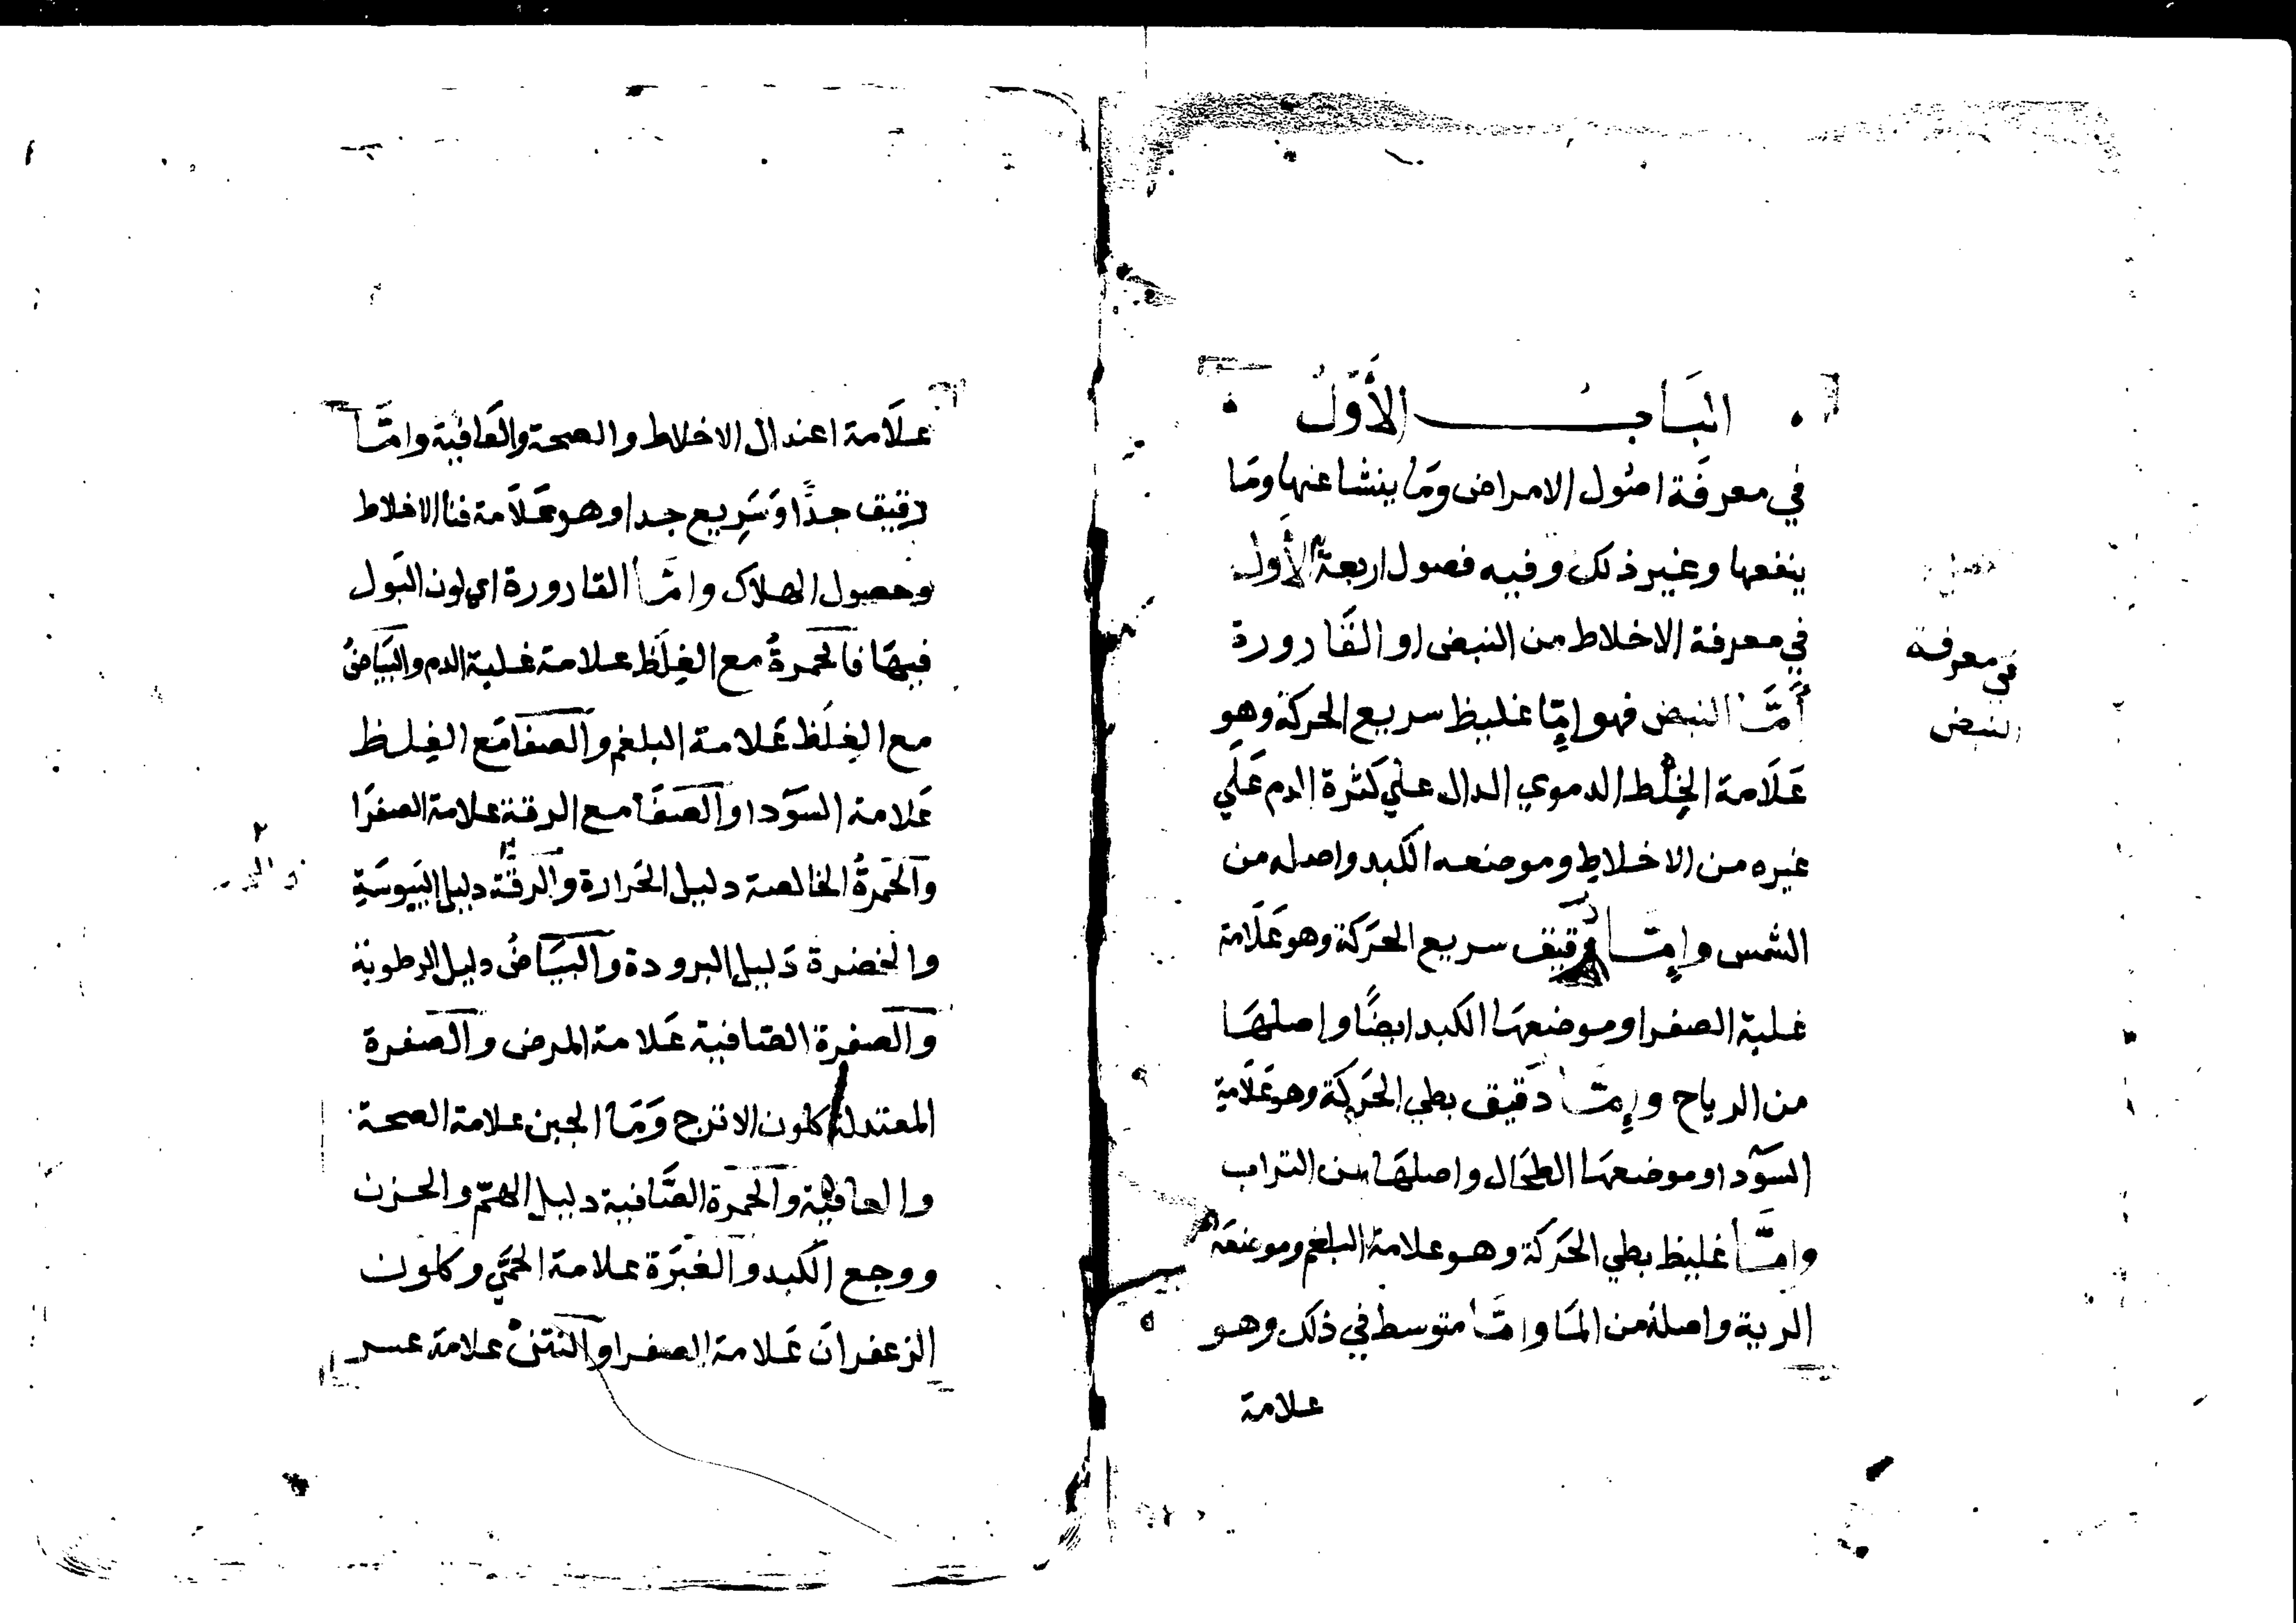 البَابُ الأَوَّلُ
في معرفة اصُول الامراض وَمَا ينشا عنها ومَا
ينفعها وغير ذلك وفيه فصول اربعة الأَول
في معرفة الاخلاط من النبض او القَارورة
أَمَّا النبض فهو اِمّا غليظ سريع الحركة وهو
عَلَامة الخِلْط الدموي الدال علي كَثرة الدم عَلَي
غيره من الاخلاطِ وموضعه الكبد واصله من
الشمس واِمّا رقيق سريع الحرَكة وهو عَلَامة
غلبة الصفرا وموضعهَا الكبد ايضًا واصلهَا
من الرياح واِمّا دَقيق بطي الحَركة وهو عَلَامة
السوَدا وموضعهَا الطحَال واصلهَا من التراب
وامَّا غليظ بطي الحَركة وهو علامة البلغم وموضعَه
الرية واصله من المَا وامَّا متوسط في ذلك وهو
علامة
في معرفة
النبض
علَامة اعتدال الاخلاط والصحة والعَافية وامَّا
رقيق جدًّا وَسَرِيع جدا وهو عَلَامة فنا الاخلاط
وحصول الهلاك وامَّا القارورة اي لون البَول
فيهَا فالحمرةُ مع الغِلَظ علامة غلبة الدم والبيَاضُ
مع الغِلَظ عَلامة البلغم والصفا مَع الغِلظ
عَلامة السوَدا والصفَا مع الرقة علامة الصفرَا
والحَمرةُ الخالصة دليل الحَرارة والرقَّة دليل اليَبوسَةِ
والخضرة دَليل البرودة والبيَاضُ دليل الرطوبة
والصفرة الصَافية عَلامة المرض والصفرة
المعتدلة كلون الاترج وَمَا الجبن علامة الصحة
والعافية والحمرة الصَّافية دليل الهمّ والحزن
ووجع الكَبد والغبَرَة علامة الحمَّي وكلون
الزعفرانَ عَلامة الصفرا والنتنْ علامة عسر